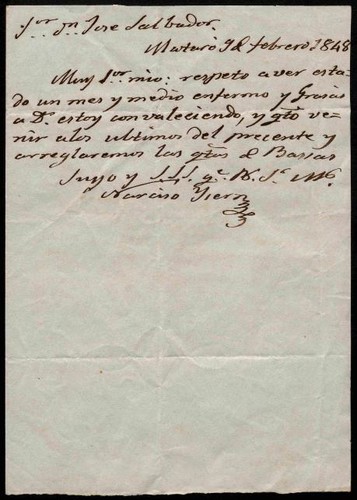 Sor. Dn. Jose Salbador.
Mataro 9 d febrero 1848
Muy Sor. mio: respeto a ver esta-
do un mes y medio enfermo y Grasias
a D. estoy convaleciendo, y qto ve-
nir a los ultimos del precente y
arreglaremos las qtas d Basias
Suyo y S.S.S. q. B. S. M.
Narciso